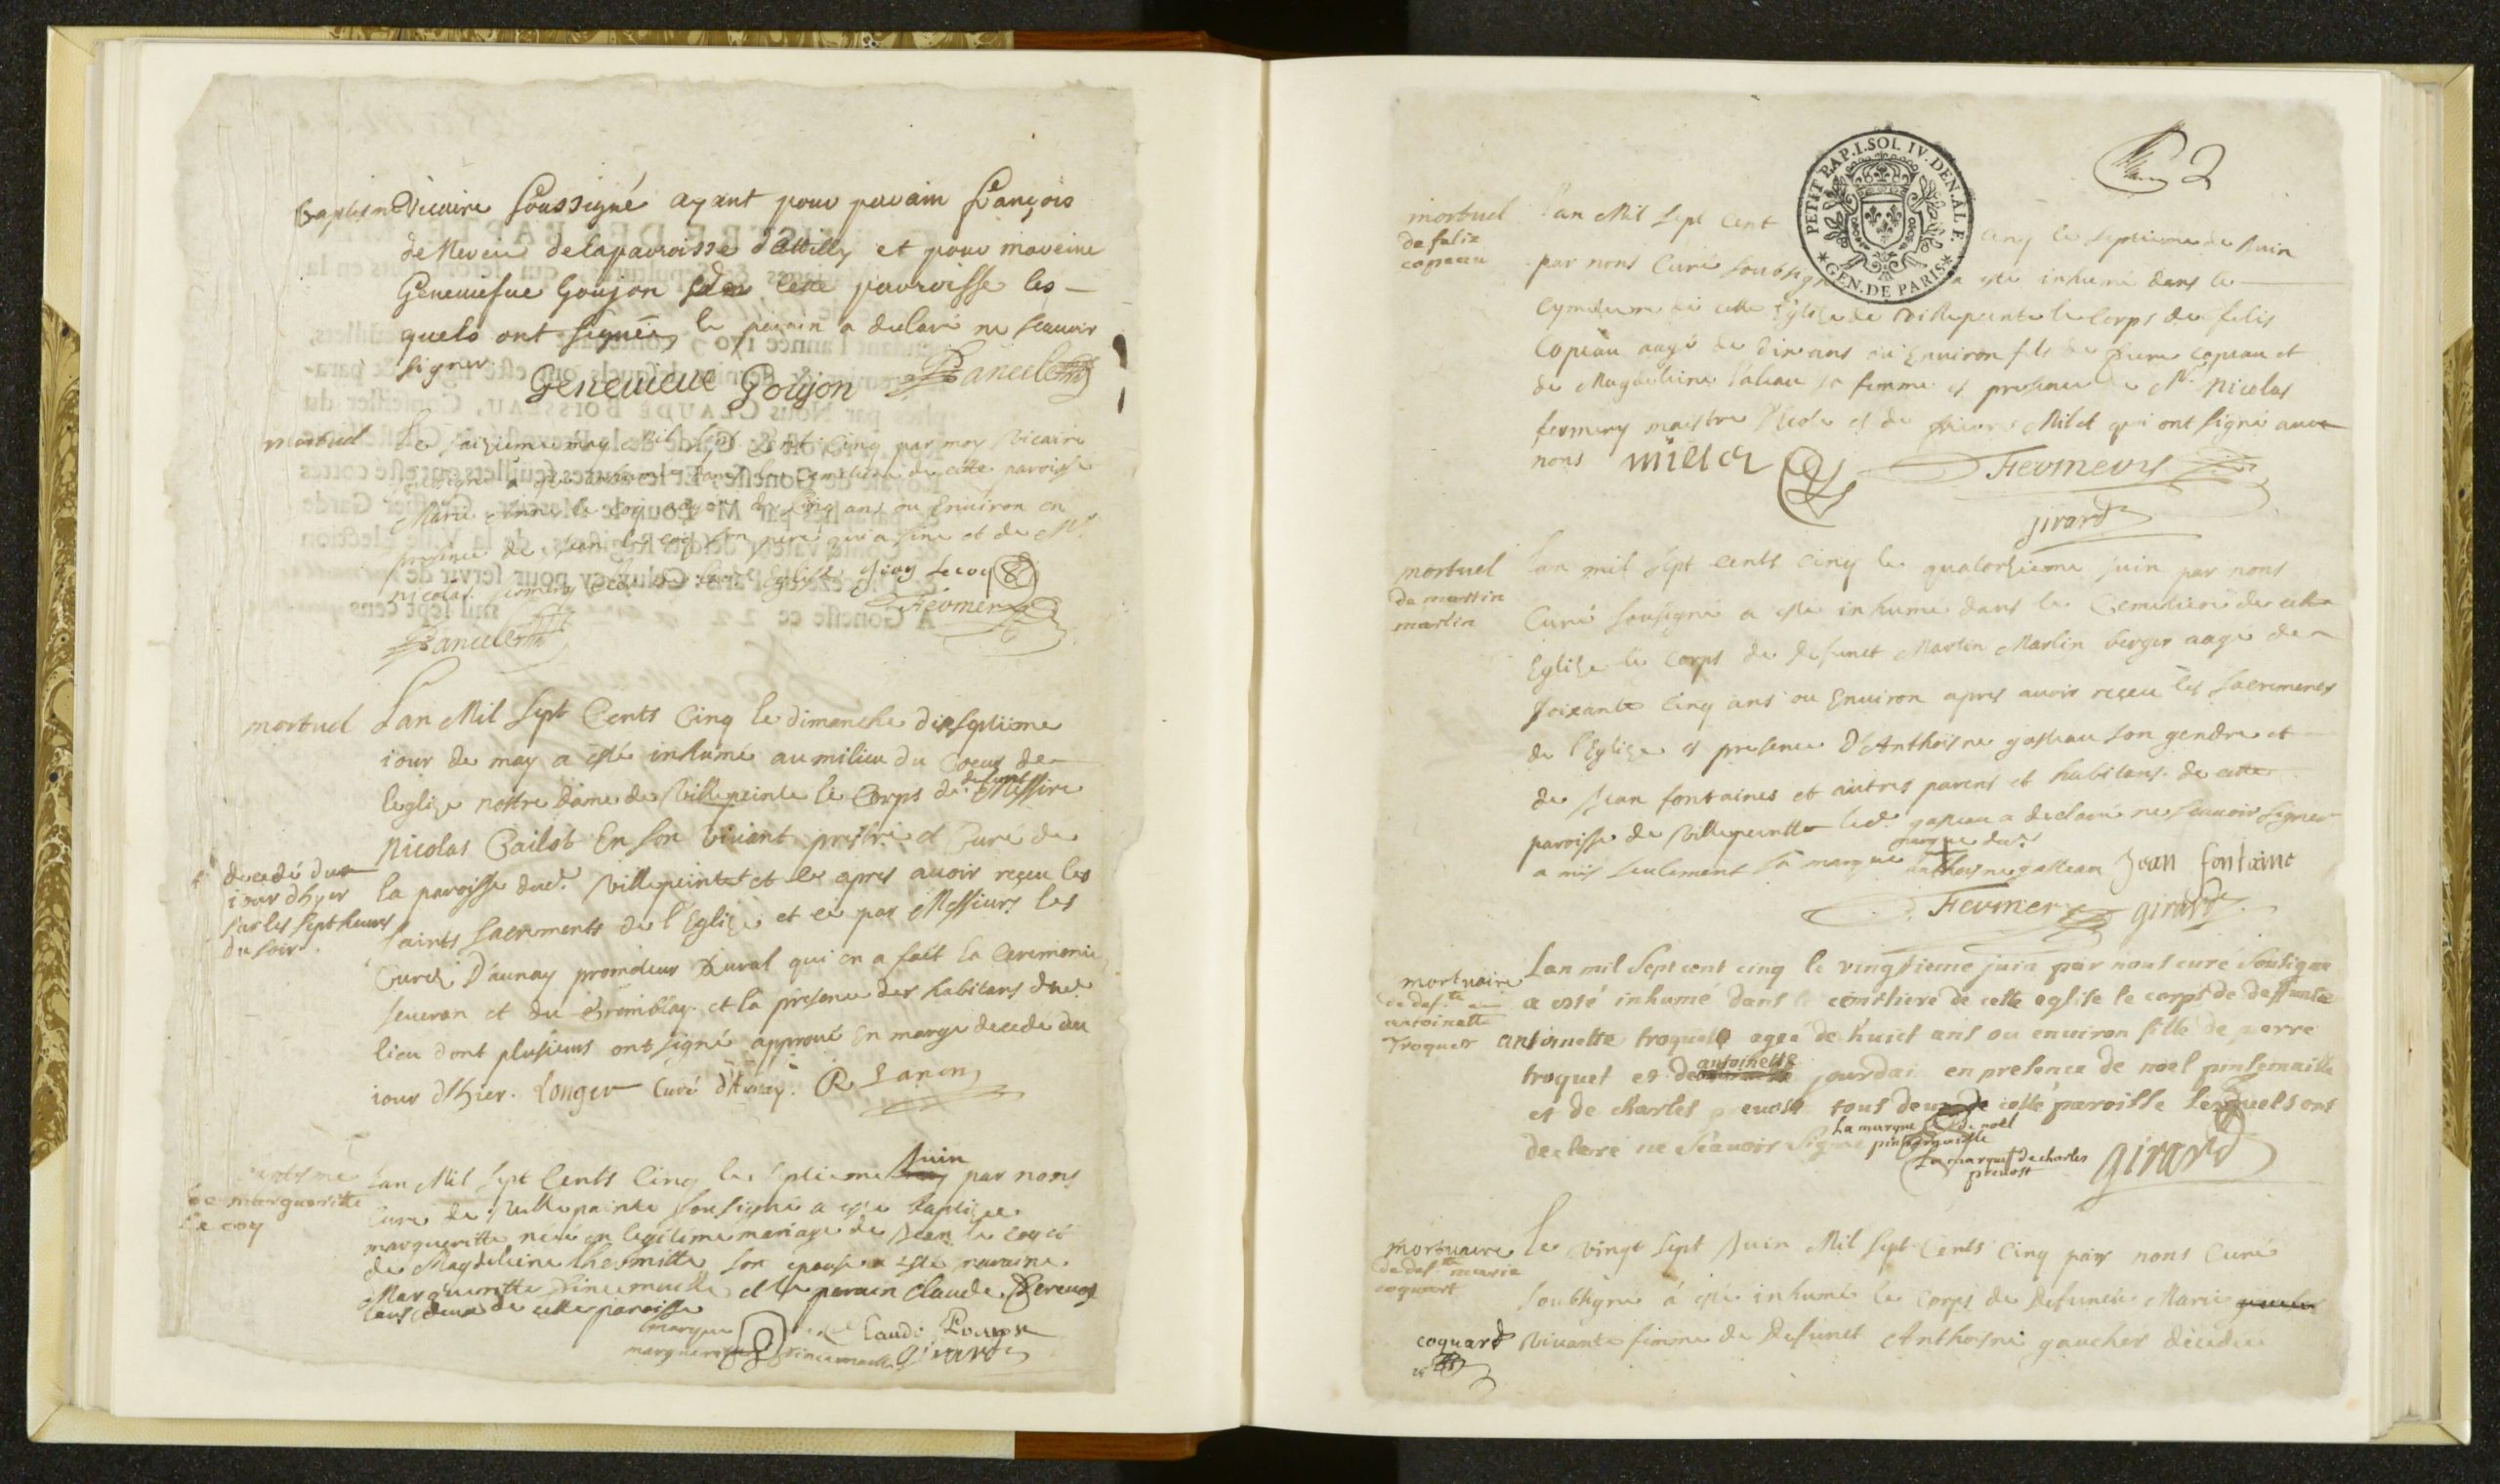 Baptesme
vicaire soussigné ayant pour parain françois
de la paroisse d'Attilly et pour maraine
Geneviefue Goujon de cette paroisse les-
quels ont signés le parain a declaré ne scauoir
signer
Geneuieue Goujon Lancel
mortuel
Le saizieme may Mil sept Cent Cinq par moy vicaire
soussigné a esté inhumée dans le cemetiere de cette paroisse
Marie Anne le coq aagée de Cinq ans ou Enuiron en
presence de Jean le coq son pere qui a siné et de Mr
nicolas fermery
fermery
Lancel
mortuel
Lan Mil sept Cents Cinq le dimanche dixseptieme
iour de may a esté inhumé au milieu du Coeur de
leglize nostre Dame de Villepeinte le Corps de defunt Messire
Nicolas Cailot En son viuant prestre et Curé de
la paroisse dud. Villepeinte et ce apres auoir reçeu les
saints sacrements de l'Eglize et ce par Messieurs les
Curés D'aunay promoteur Rural qui en a fait la Ceremonie
seueran et du Tremblay et la presence des habitans dud.
lieu dont plusieurs ont signé approuué En marge decedé du
iour d'hier. Longer Curé d'Aunay. R Lanon
decedé du
iour d'hyer
sur les sept heures
du soir.
baptesme
de margueritte
le coq
Lan Mil sept Cents Cinq le septieme Juin par nous
Curé de Villepainte sousigné a esté baptizée
margueritte néé en legitime mariage de Jean le coq et
de Magdeleine Lhermitte son epouse a esté maraine
Margueritte Pincemaille et le parain Claude Preuost
tous deux de cette paroisse
marque
margueritte pincemaille
Claude Preuost
girard
2
PETIT PAP. I. SOL IV. DEN. AL F.
GEN. DE PARIS
mortuel
de felix
copeau
l'an Mil sept Cent Cinq le septieme de Juin
par nous Curé soubsigné a esté inhumé dans le
Cymetiere de cette Eglize de Villepeinte le Corps de felix
Copeau aagé de dix ans ou Enuiron fils de Pierre Copeau et
de Magdeleine sa femme et presence de Mr Nicolas
fermery maistre d'Ecole et de Milet qui ont signé auec
nous millet Fermery
girard
mortuel
de martin
martin
Lan mil sept cents cinq le quatorzieme juin par nous
Curé sousigné a esté inhumé dans le Cemetiere de cette
Eglize le corps de defunct Martin Martin berger aagé de
soixante Cinq ans ou Enuiron apres auoir reçeu les sacrements
de l'Eglize et presence D'Anthoine gasteau son gendre et
de Jean fontaines et autres parens et habitans de cette
paroisse de Villepeintte led. gasteau a declaré ne scauoir signer
a mis seulement sa marque marque dud. anthoine gasteau Jean fontaine
Fermery girard
mortuaire
de defte
antoinette
troquet
Lan mil sept cent cinq le vingtieme juin par nous curé sousigné
a esté inhumé dans le cimetiere de cette eglise le corps de deffunte
antoinette troquet ageé de huict ans ou enuiron fille de pierre
troquet et de antoinette jourdai en presence de noel pinsemaille
et de charles preuost tous deux de cette paroisse lesquels ont
declaré ne scauoir signer
La marque de noel
pinsemaille
La marque de charles
preuost
girard
mortuaire
de defte marie
coquart
Le vingt sept Juin Mil sept Cents Cinq par nous Curé
soubsigné a esté inhumé le corps de defuncte Marie
coquard viuante femme de defunct Anthoine gaucher decedée